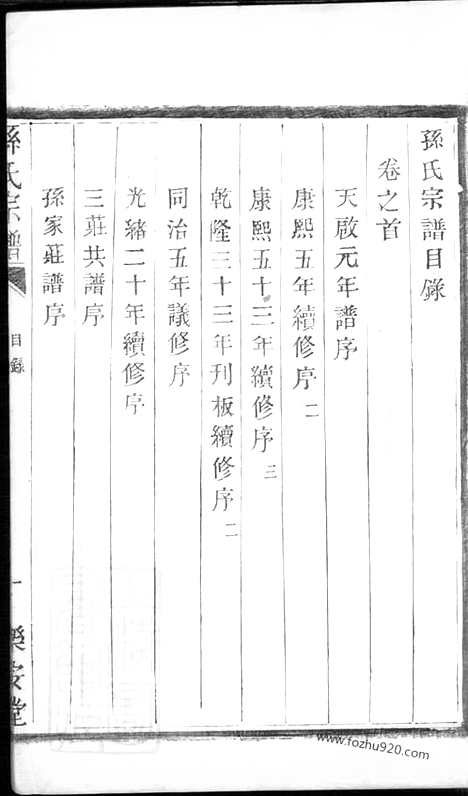 孫氏宗譜目錄
卷之首
天啟元年譜序
康熙五年續修序 二
康熙五十三年續修序 三
乾隆三十三年刊板續修序 二
同治五年議修序
光緒二十年續修序
三莊共譜序
孫家莊譜序
孫氏宗譜
目錄
一
樂安堂
www.fozhu920.com